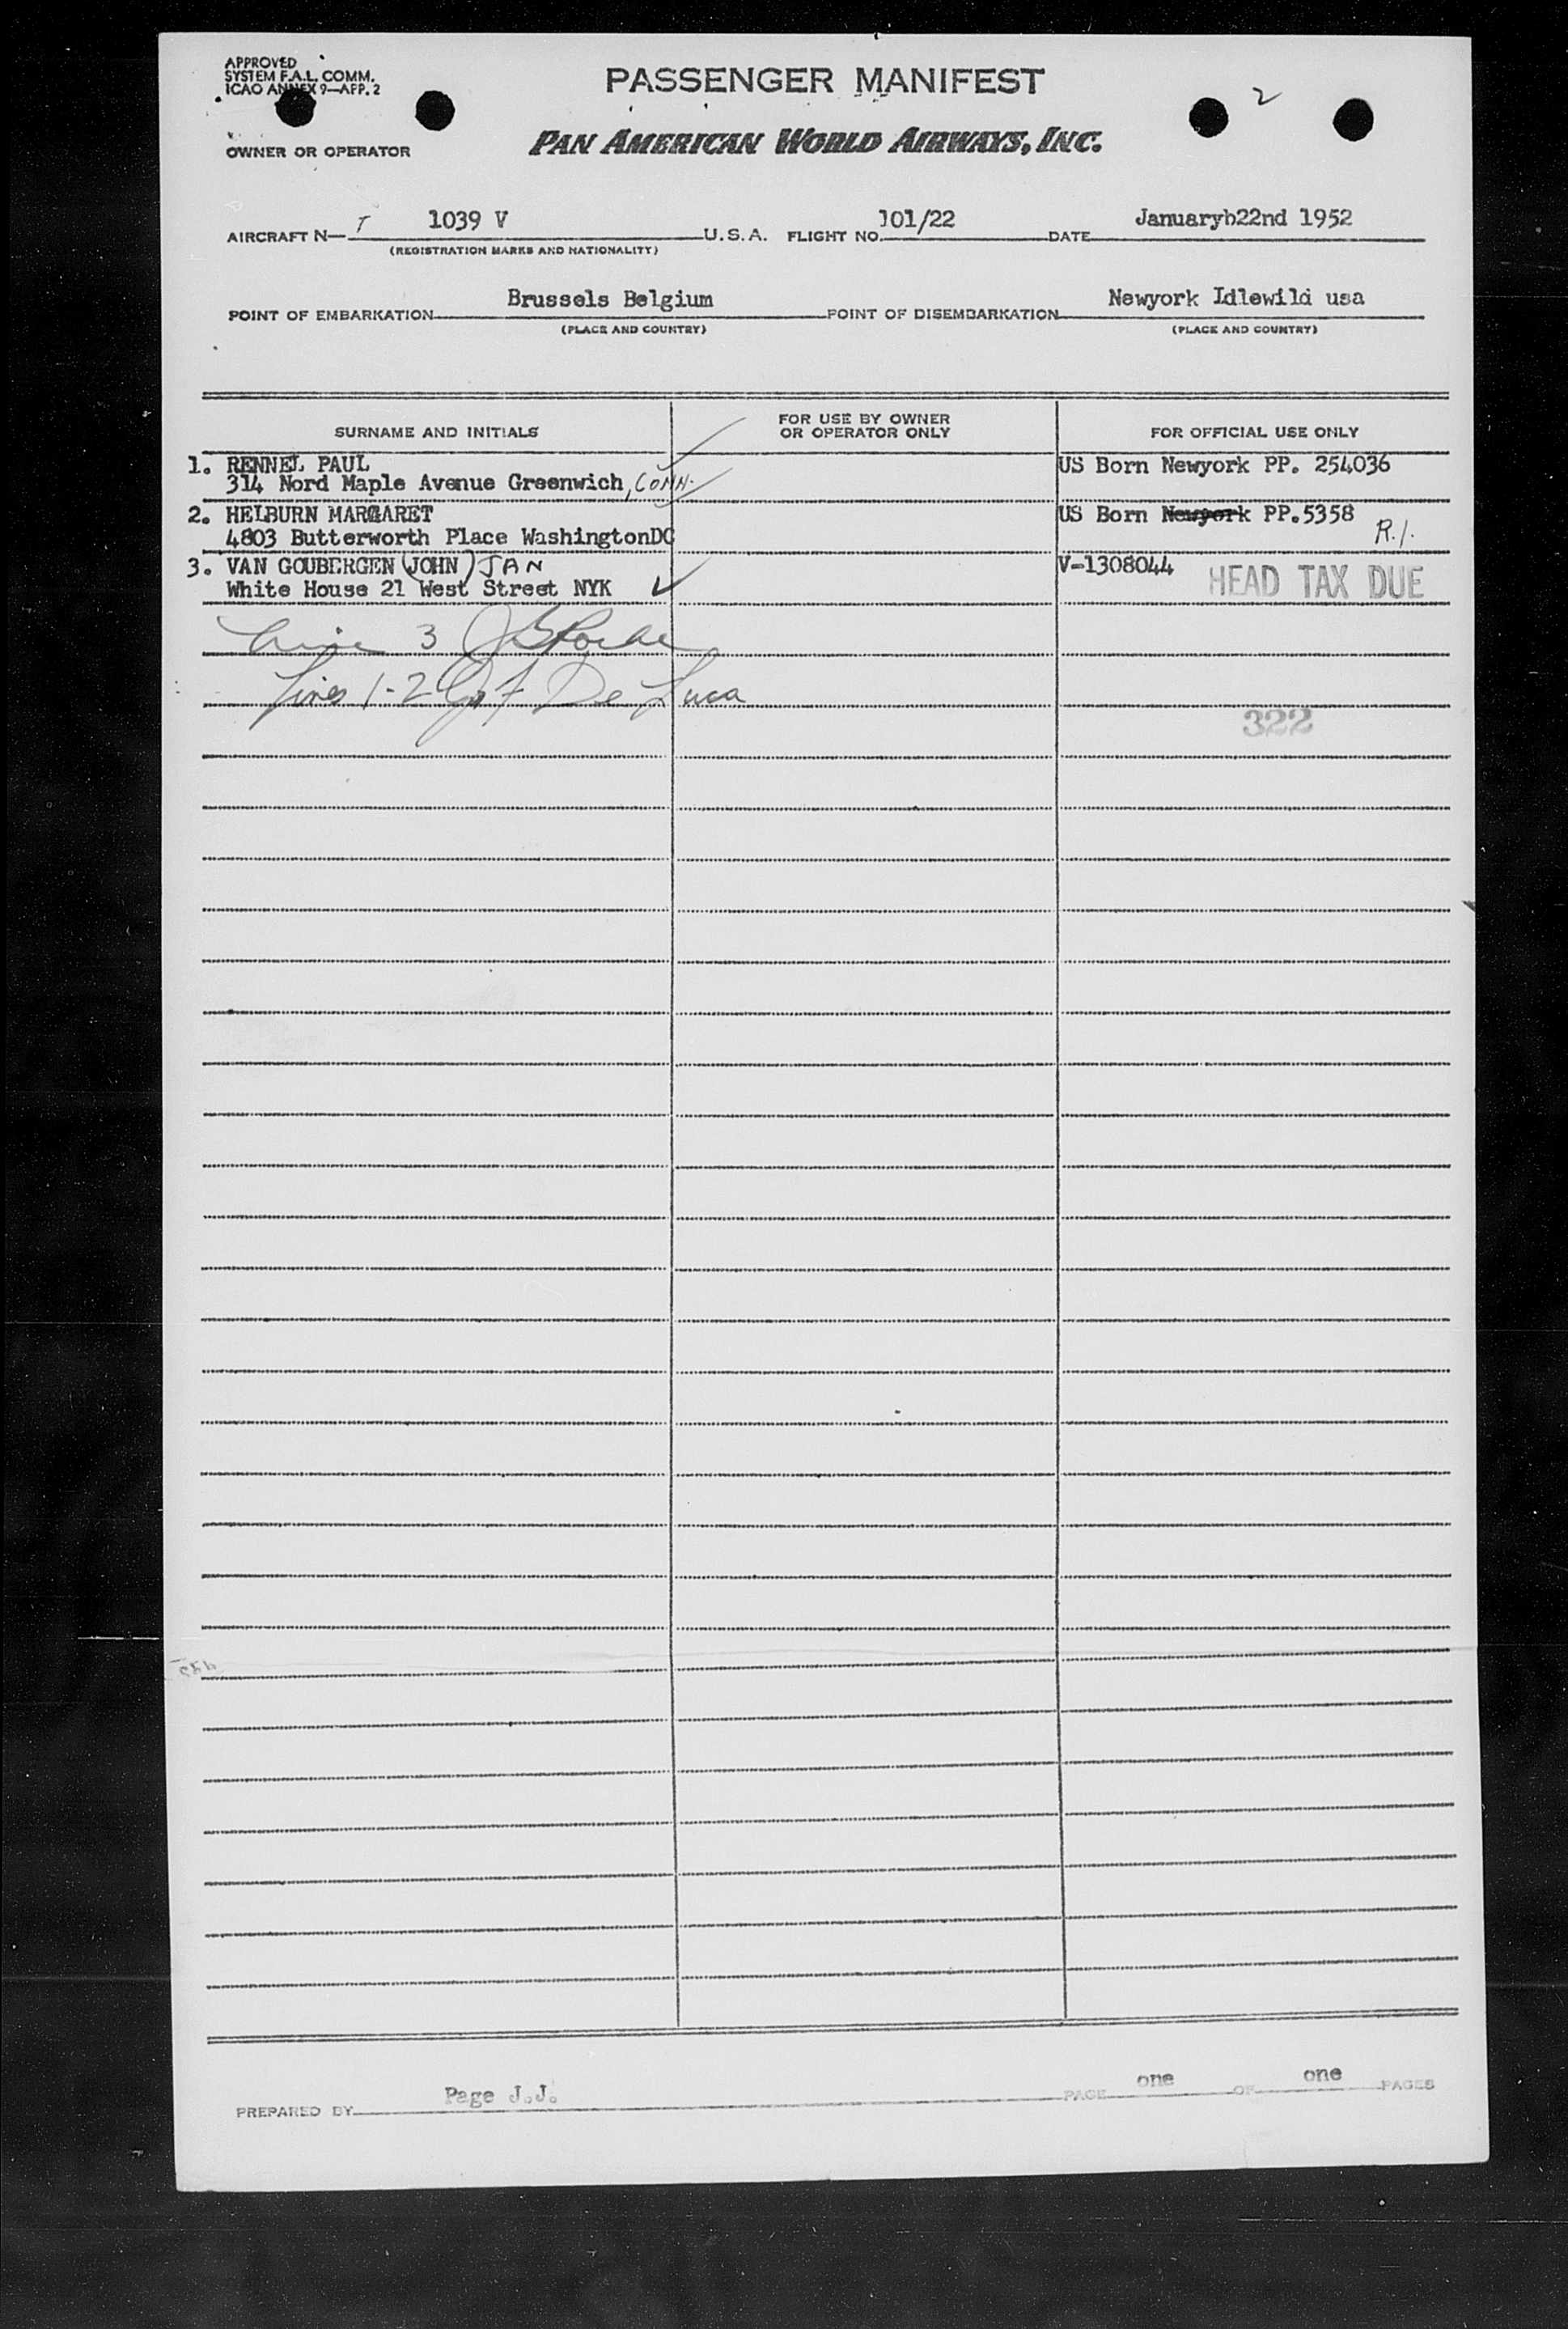 APPROVED
SYSTEM F.A.L. COMM.
ICAO ANNEX 9—APP. 2
PASSENGER MANIFEST
2
OWNER OR OPERATOR
PAN AMERICAN WORLD AIRWAYS, INC.
AIRCRAFT N— 1039 V U.S.A. FLIGHT NO. 101/22 DATE Januaryb22nd 1952
(REGISTRATION MARKS AND NATIONALITY)
POINT OF EMBARKATION Brussels Belgium POINT OF DISEMBARKATION Newyork Idlewild usa
(PLACE AND COUNTRY) (PLACE AND COUNTRY)
SURNAME AND INITIALS
FOR USE BY OWNER
OR OPERATOR ONLY
FOR OFFICIAL USE ONLY
1. RENNEL PAUL US Born Newyork PP. 254036
314 Nord Maple Avenue Greenwich, CONN.
2. HELBURN MARGARET US Born Newyork PP.5358
4803 Butterworth Place WashingtonDC R.I.
3. VAN GOUBERGEN (JOHN) JAN V-1308044
White House 21 West Street NYK HEAD TAX DUE
Line 3
Lines 1-2 De Luca
322
PREPARED BY Page J.J. PAGE one OF one PAGES